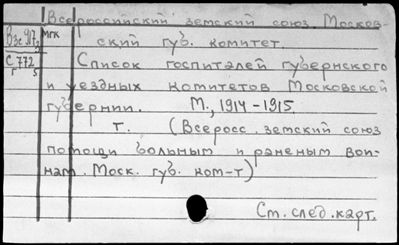 Всероссийский земский союз Москов-
МГК ский губ. комитет.
С 772 Список госпиталей губернского
г 5 и уездных комитетов Московской
губернии. М., 1914-1915.
т. (Всеросс. земский союз
помощи больным и раненым вои-
нам. Моск. губ. ком-т)
См. след. карт.